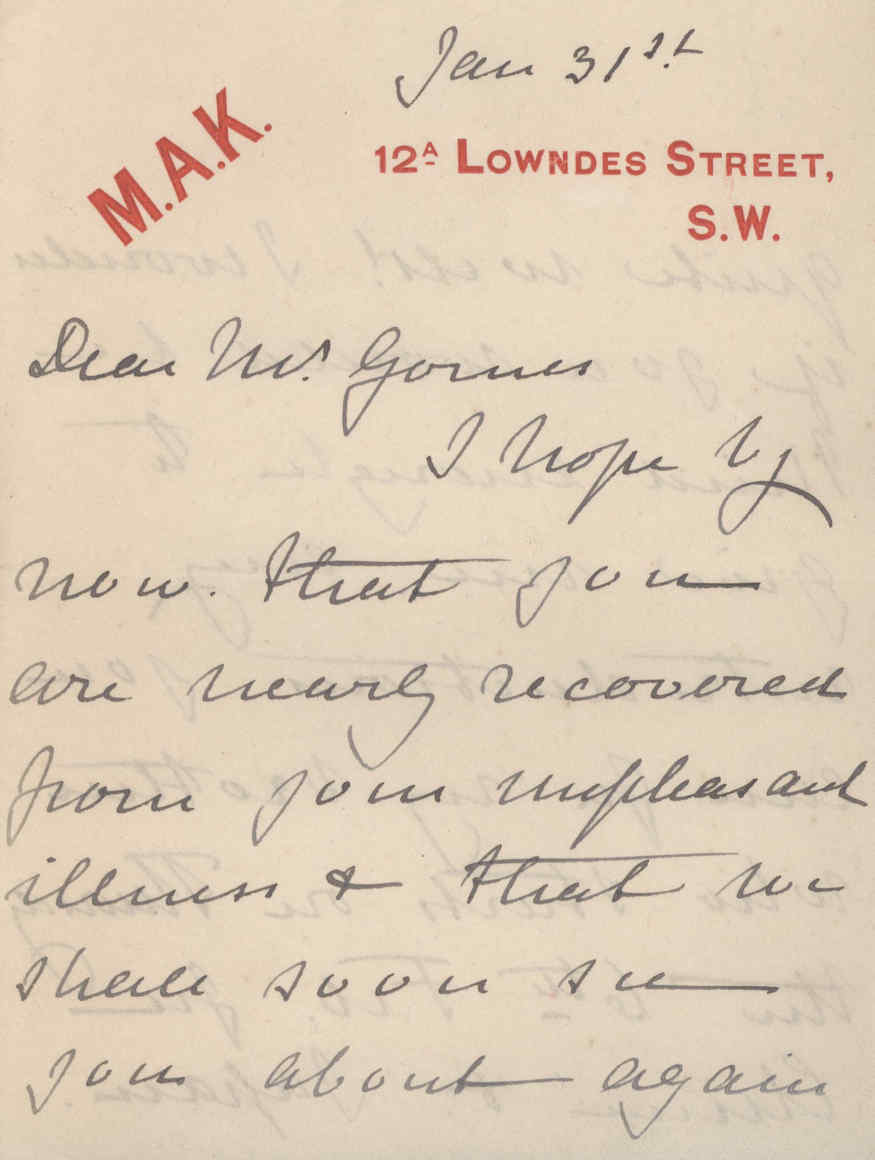 Jan 31st
M.A.K.
12A LOWNDES STREET,
S.W.
Dear Mr. Gomes
I hope by
now. that you
are nearly recovered
from your unpleasant
illness & that we
shall soon see
you about again